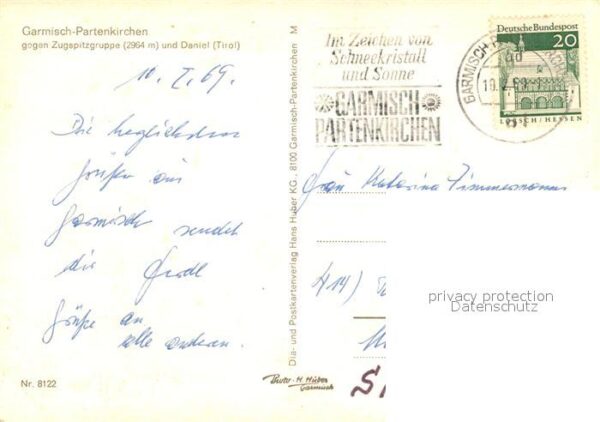 Garmisch-Partenkirchen
gegen Zugspitzgruppe (2964 m) und Daniel (Tirol)
10. I. 69.
Die herzlichsten
Grüße aus
Garmisch sendet
die Gretl
Grüße an
alle anderen.
Nr. 8122
M
Dia- und Postkartenverlag Hans Huber KG., 8100 Garmisch-Partenkirchen
Photo-H. Huber
Garmisch
Im Zeichen von
Schneekristall
und Sonne
GARMISCH
PARTENKIRCHEN
GARMISCH-
Deutsche Bundespost
20
LORSCH / HESSEN
Frau Katarina Zimmermann
414)
privacy protection
Datenschutz